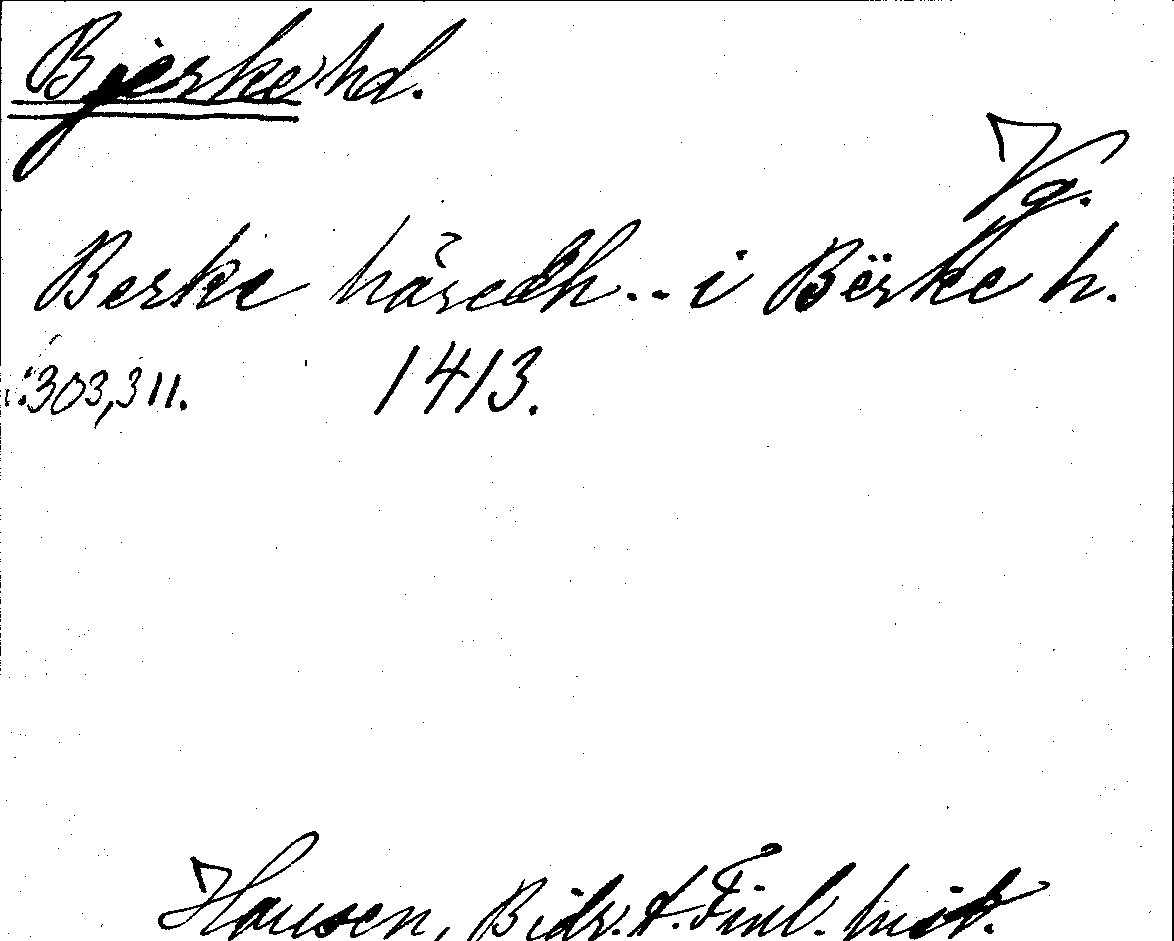 Bjerke hd.
Vg.
Berke häredh... i Bërke h.
303,311. 1413.
Hausen, Bidr. t. Finl. hist.